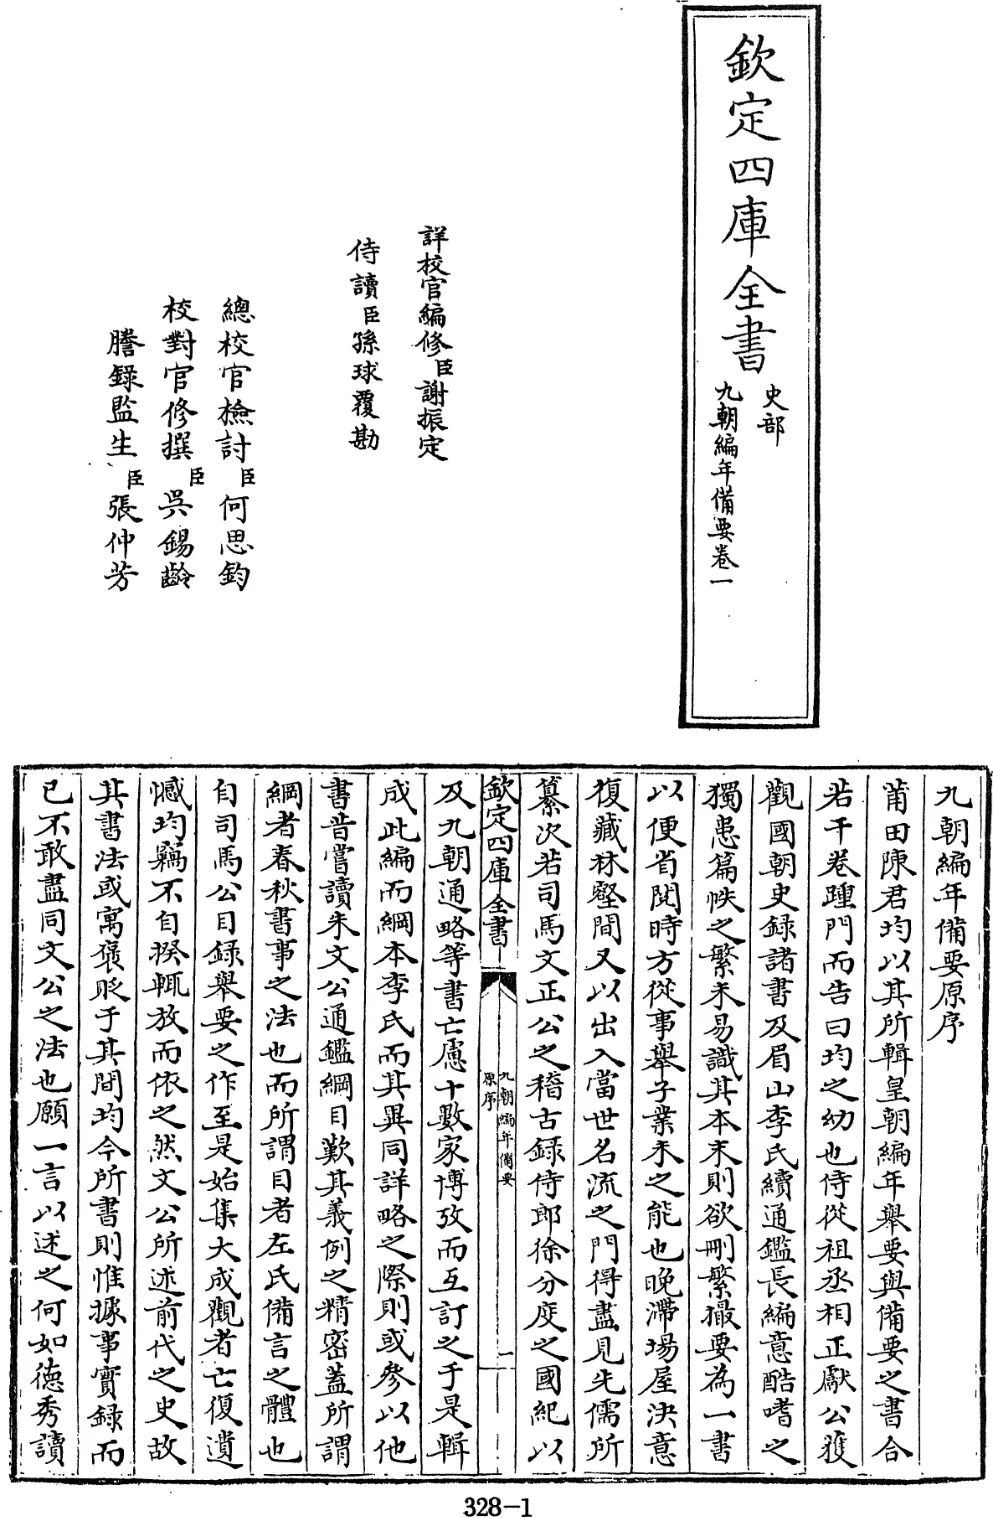 欽定四庫全書
史部
九朝編年備要卷一
詳校官編修臣謝振定
侍讀臣孫球覆勘
總校官檢討臣何思鈞
校對官修撰臣吳錫齡
謄錄監生臣張仲芳
九朝編年備要原序
莆田陳君均以其所輯皇朝編年舉要與備要之書合
若干卷踵門而告曰均之幼也侍從祖丞相正獻公獲
觀國朝史録諸書及眉山李氏續通鑑長編意酷嗜之
獨患篇帙之繁未易識其本末則欲刪繁撮要為一書
以便省閲時方從事舉子業未之能也晚滯場屋決意
復藏林壑間又以出入當世名流之門得盡見先儒所
纂次若司馬文正公之稽古録侍郎徐分度之國紀以
欽定四庫全書
九朝編年備要
原序
一
及九朝通略等書亡慮十數家博攷而互訂之于是輯
成此編而綱本李氏而其異同詳略之際則或參以他
書昔嘗讀朱文公通鑑綱目歎其義例之精密蓋所謂
綱者春秋書事之法也而所謂目者左氏備言之體也
自司馬公目録舉要之作至是始集大成觀者亡復遺
憾均竊不自揆輒放而依之然文公所述前代之史故
其書法或寓褒貶于其間均今所書則惟據事實録而
已不敢盡同文公之法也願一言以述之何如德秀讀
328-1